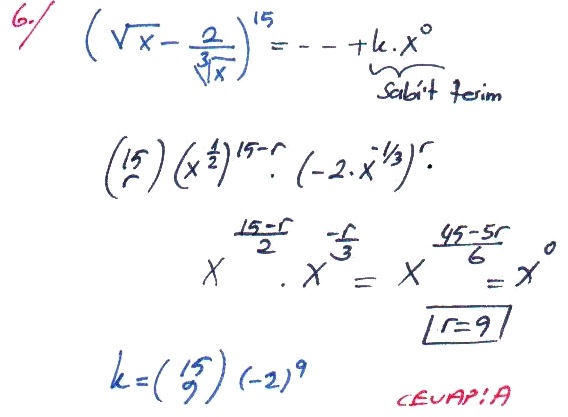 6./ (√x - 2/∛x)^15 = --- + k.x^0
Sabit terim
(15 r) (x^1/2)^15-r . (-2.x^-1/3)^r .
x^(15-r)/2 . x^-r/3 = x^(45-5r)/6 = x^0
r=9
k = (15 9) (-2)^9
CEVAP:A